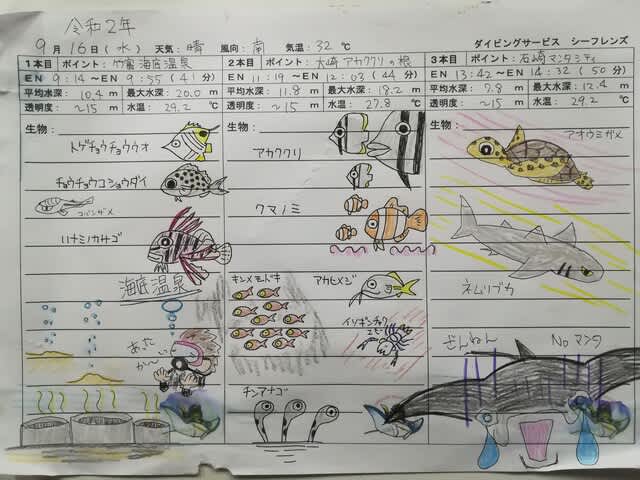 令和2年
9月16日(水) 天気:晴 風向:南 気温:32℃ ダイビングサービス シーフレンズ
1本目 ポイント:竹富海底温泉
EN 9:14~EN 9:55 (41分)
平均水深: 10.4 m 最大水深: 20.0 m
透明度: ~15 m 水温: 29.2 ℃
生物:
トゲチョウチョウウオ
チョウチョウコショウダイ
コバンザメ
ハナミノカサゴ
海底温泉
あった
か〜い
2本目 ポイント:大崎アカククリの根
EN 11:19~EN 12:03 (44分)
平均水深: 11.8 m 最大水深: 18.2 m
透明度: ~15 m 水温: 27.8 ℃
生物:
アカククリ
クマノミ
キンメモドキ
アカヒメジ
イソギンチャク
エビ
チンアナゴ
3本目 ポイント:石崎マンタシティ
EN 13:42~EN 14:32 (50分)
平均水深: 7.8 m 最大水深: 12.4 m
透明度: ~15 m 水温: 29.2 ℃
生物:
アオウミガメ
ネムリブカ
ざんねん No マンタ